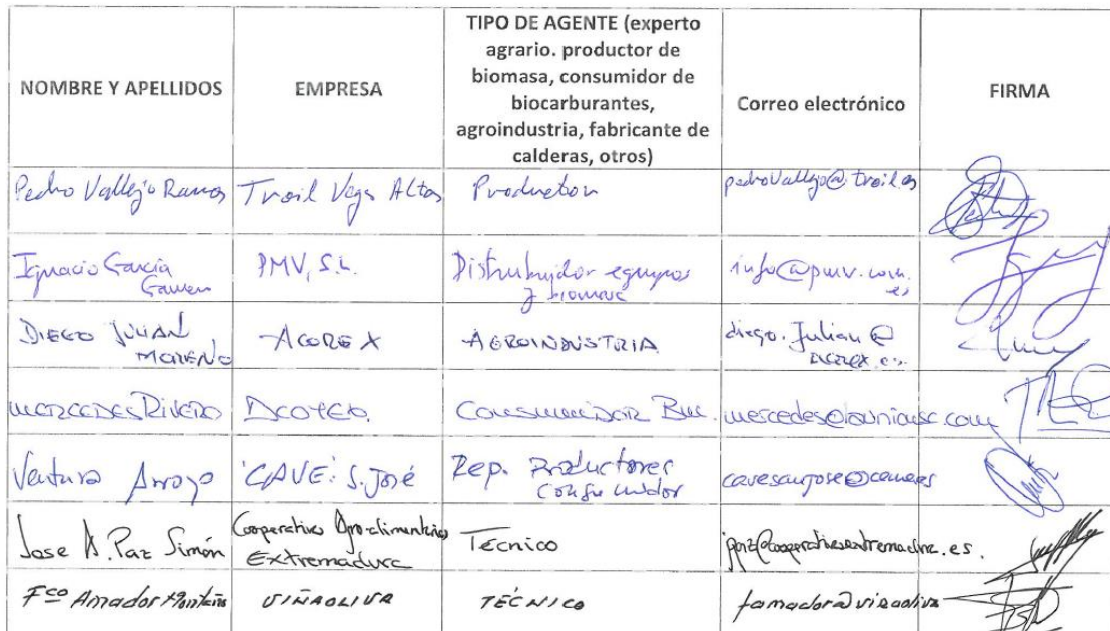 NOMBRE Y APELLIDOS
EMPRESA
TIPO DE AGENTE (experto
agrario. productor de
biomasa, consumidor de
biocarburantes,
agroindustria, fabricante de
calderas, otros)
Correo electrónico
FIRMA
Pedro Vallejo Ramos Troil Vegas Altas Productor pedrovallejo@troil.es
Ignacio García PMV, S.L. Distribuidor equipos info@pmv.com.
y biomasa es
DIEGO JULIAN ACOREX AGROINDUSTRIA diego.julian@
MORENO acorex.es
MERCEDES RIVERO DCOTEO. CONSUMIDOR
Ventura Arroyo "CAVE" S. José Rep. Productores
Consumidor
Jose A. Paz Simón Cooperativas Agro-alimentarias Técnico jpaz@cooperativasextremadura.es.
Extremadura
Fco Amador VIÑAOLIVA TÉCNICO famador@viñaoliva